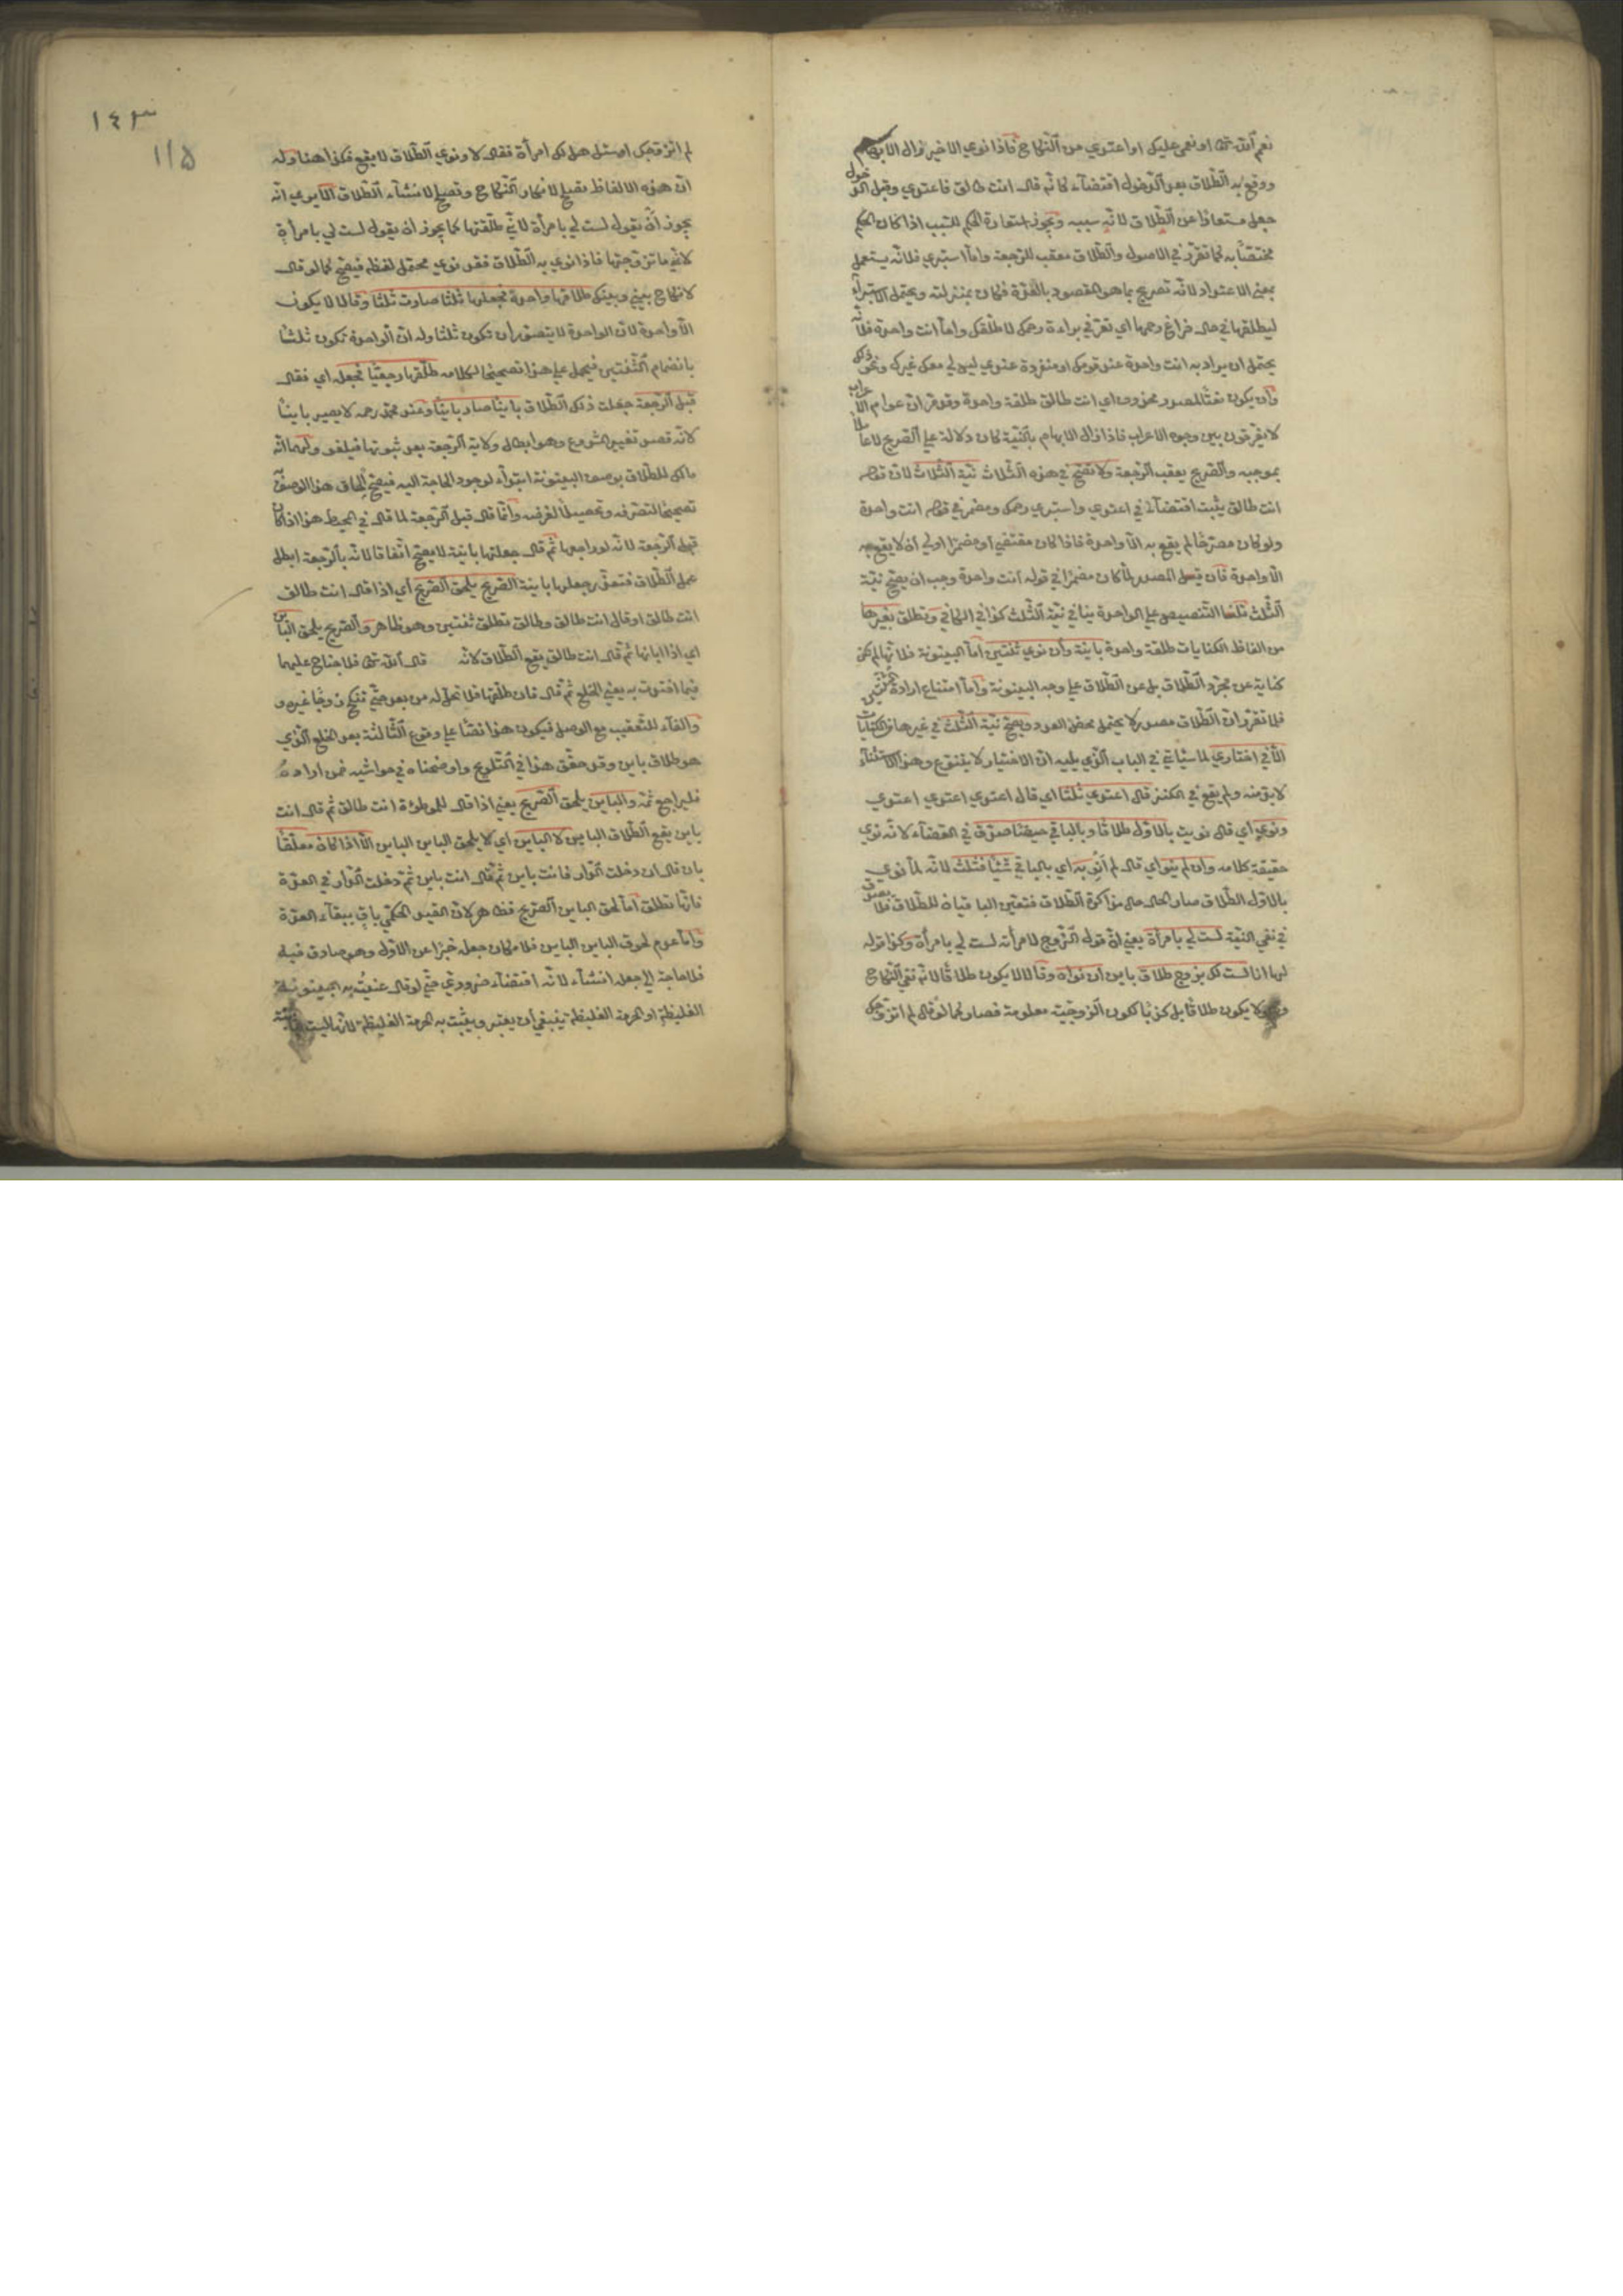 نعم الله تعالى او نعمي عليك او اعتدي من النكاح فاذا نوى الاخير زال الابهام
ووقع به الطلاق بعد الدخول اقتضاء كانه قال انت طالق فاعتدي وقبل الدخول
جعل مستعارا عن الطلاق لانه سببه ويجوز استعارة الحكم للسبب اذا كان الحكم
مختصا به كما تقرر في الاصول والطلاق معقب للرجعة واما استبرئي فلانه يستعمل
بمعنى الاعتداد لانه تصريح بما هو المقصود بالعدة فكان بمنزلته ويحتمل الاستبراء
ليطلقها في حال فراغ رحمها اي تعرفي براءة رحمك لاطلقك واما انت واحدة فلانه
يحتمل ان يراد به انت واحدة عند قومك او منفردة عندي ليس لي معك غيرك ونحو ذلك
وان يكون نعتا لمصدر محذوف اي انت طالق طلقة واحدة وقد مر ان عوام الاعراب
لا يفرقون بين وجوه الاعراب فاذا زال الابهام بالنية كان دلالة على الصريح لا عاملا
بموجبه والصريح يعقب الرجعة ولا تصح في هذه الثلاث نية الثلاث لان قوله
انت طالق يثبت اقتضاء في اعتدي واستبرئي رحمك ومضمر في قوله انت واحدة
ولو كان مصرحا لم يقع به الا واحدة فاذا كان مقتضى او مضمرا اولى ان لا يقع به
الا واحدة فان قيل المصدر لما كان مضمرا في قوله انت واحدة وجب ان يصح نية
الثلث قلنا التنصيص على الواحدة ينافي نية الثلث كذا في الكافي وتطلق بغيرها
من الفاظ الكنايات طلقة واحدة باينة وان نوى ثنتين اما البينونة فلانها لم تكن
كناية عن مجرد الطلاق بل عن الطلاق على وجه البينونة واما امتناع ارادة ثنتين
فلما تقرر ان الطلاق مصدر لا يحتمل محض العدد ويصح نية الثلث في غيرها من الكنايات
الا في اختاري لما سيأتي في الباب الذي يليه ان الاختيار لا يتنوع وهذا الاستثناء
لا بد منه ولم يقع في الكنز قال اعتدي ثلثا اي قال اعتدي اعتدي اعتدي
ونوى اي قال نويت بالاول طلاقا وبالباقي حيضا صدق في القضاء لانه نوى
حقيقة كلامه وان لم ينو اي قال لم انو به اي بالباقي شيئا فثلث لانه لما نوى
بالاول الطلاق صار الحال حال مذاكرة الطلاق فتعين الباقيان للطلاق فلا يصدق
في نفي النية لست لي بامرأة يعني ان قول الزوج لامرأته لست لي بامرأة وكذا قوله
لها انا لست لك بزوج طلاق باين ان نواه وقالا لا يكون طلاقا لانه نفي النكاح
وهو لا يكون طلاقا بل كذبا لكون الزوجية معلومة فصار كما لو قال لم اتزوجك
١٤٣
١١٥
لم اتزوجك او سئل هل لك امرأة فقال لا ونوى الطلاق لا يقع فكذا هنا وله
ان هذه الالفاظ تصلح لانكار النكاح وتصلح لانشاء الطلاق الا يرى انه
يجوز ان يقول لست لي بامرأة لاني طلقتها كما يجوز ان يقول لست لي بامرأة
لاني ما تزوجتها فاذا نوى به الطلاق فقد نوى محتمل لفظه فيصح كما لو قال
لا نكاح بيني وبينك طلقها واحدة فجعلها ثلثا صارت ثلثا وقالا لا يكون
الا واحدة لان الواحدة لا يتصور ان تكون ثلثا وله ان الواحدة تكون ثلثا
بانضمام الثنتين فيحمل على هذا تصحيحا لكلامه طلقها رجعيا فجعله اي فقال
قبل الرجعة جعلت ذلك الطلاق باينا صار باينا وعند محمد رحمه لا يصير باينا
لانه قصد تغيير المشروع وهو ابطال ولاية الرجعة بعد ثبوتها فيلغو ولهما انه
مالك للطلاق بوصف البينونة ابتداء لوجود الحاجة اليه فيصح الحاق هذا الوصف
تصحيحا لتصرفه وتحصيلا لغرضه وانما قال قبل الرجعة لما قال في المحيط هذا اذا كان
قبل الرجعة لانه لو راجعها ثم قال جعلتها باينة لا يصح اتفاقا لانه بالرجعة ابطل
عمل الطلاق فتعذر جعلها باينة الصريح يلحق الصريح اي اذا قال انت طالق
انت طالق او قال انت طالق وطالق تطلق ثنتين وهو ظاهر والصريح يلحق الباين
اي اذا ابانها ثم قال انت طالق يقع الطلاق لانه قال الله تعالى فلا جناح عليهما
فيما افتدت به يعني الخلع ثم قال فان طلقها فلا تحل له من بعد حتى تنكح زوجا غيره و
والفاء للتعقيب مع الوصل فيكون هذا نصا على وقوع الثالثة بعد الخلع الذي
هو طلاق باين وقد حقق هذا في التلويح واوضحناه في حواشيه فمن اراده
فليراجع ثمه والباين يلحق الصريح يعني اذا قال للموطوءة انت طالق ثم قال انت
باين يقع الطلاق الباين لا الباين اي لا يلحق الباين الباين الا اذا كان معلقا
بان قال ان دخلت الدار فانت باين ثم قال انت باين ثم دخلت الدار في العدة
فانها تطلق اما لحوق الباين الصريح فظاهر لان القيد الحكمي باق ببقاء العدة
واما عدم لحوق الباين الباين فلامكان جعله خبرا عن الاول وهو صادق فيه
فلا حاجة الى جعله انشاء لانه اقتضاء ضروري حتى لو قال عنيت به البينونة
الغليظة او الحرمة الغليظة ينبغي ان يعتبر ويثبت به الحرمة الغليظة لانها ليست